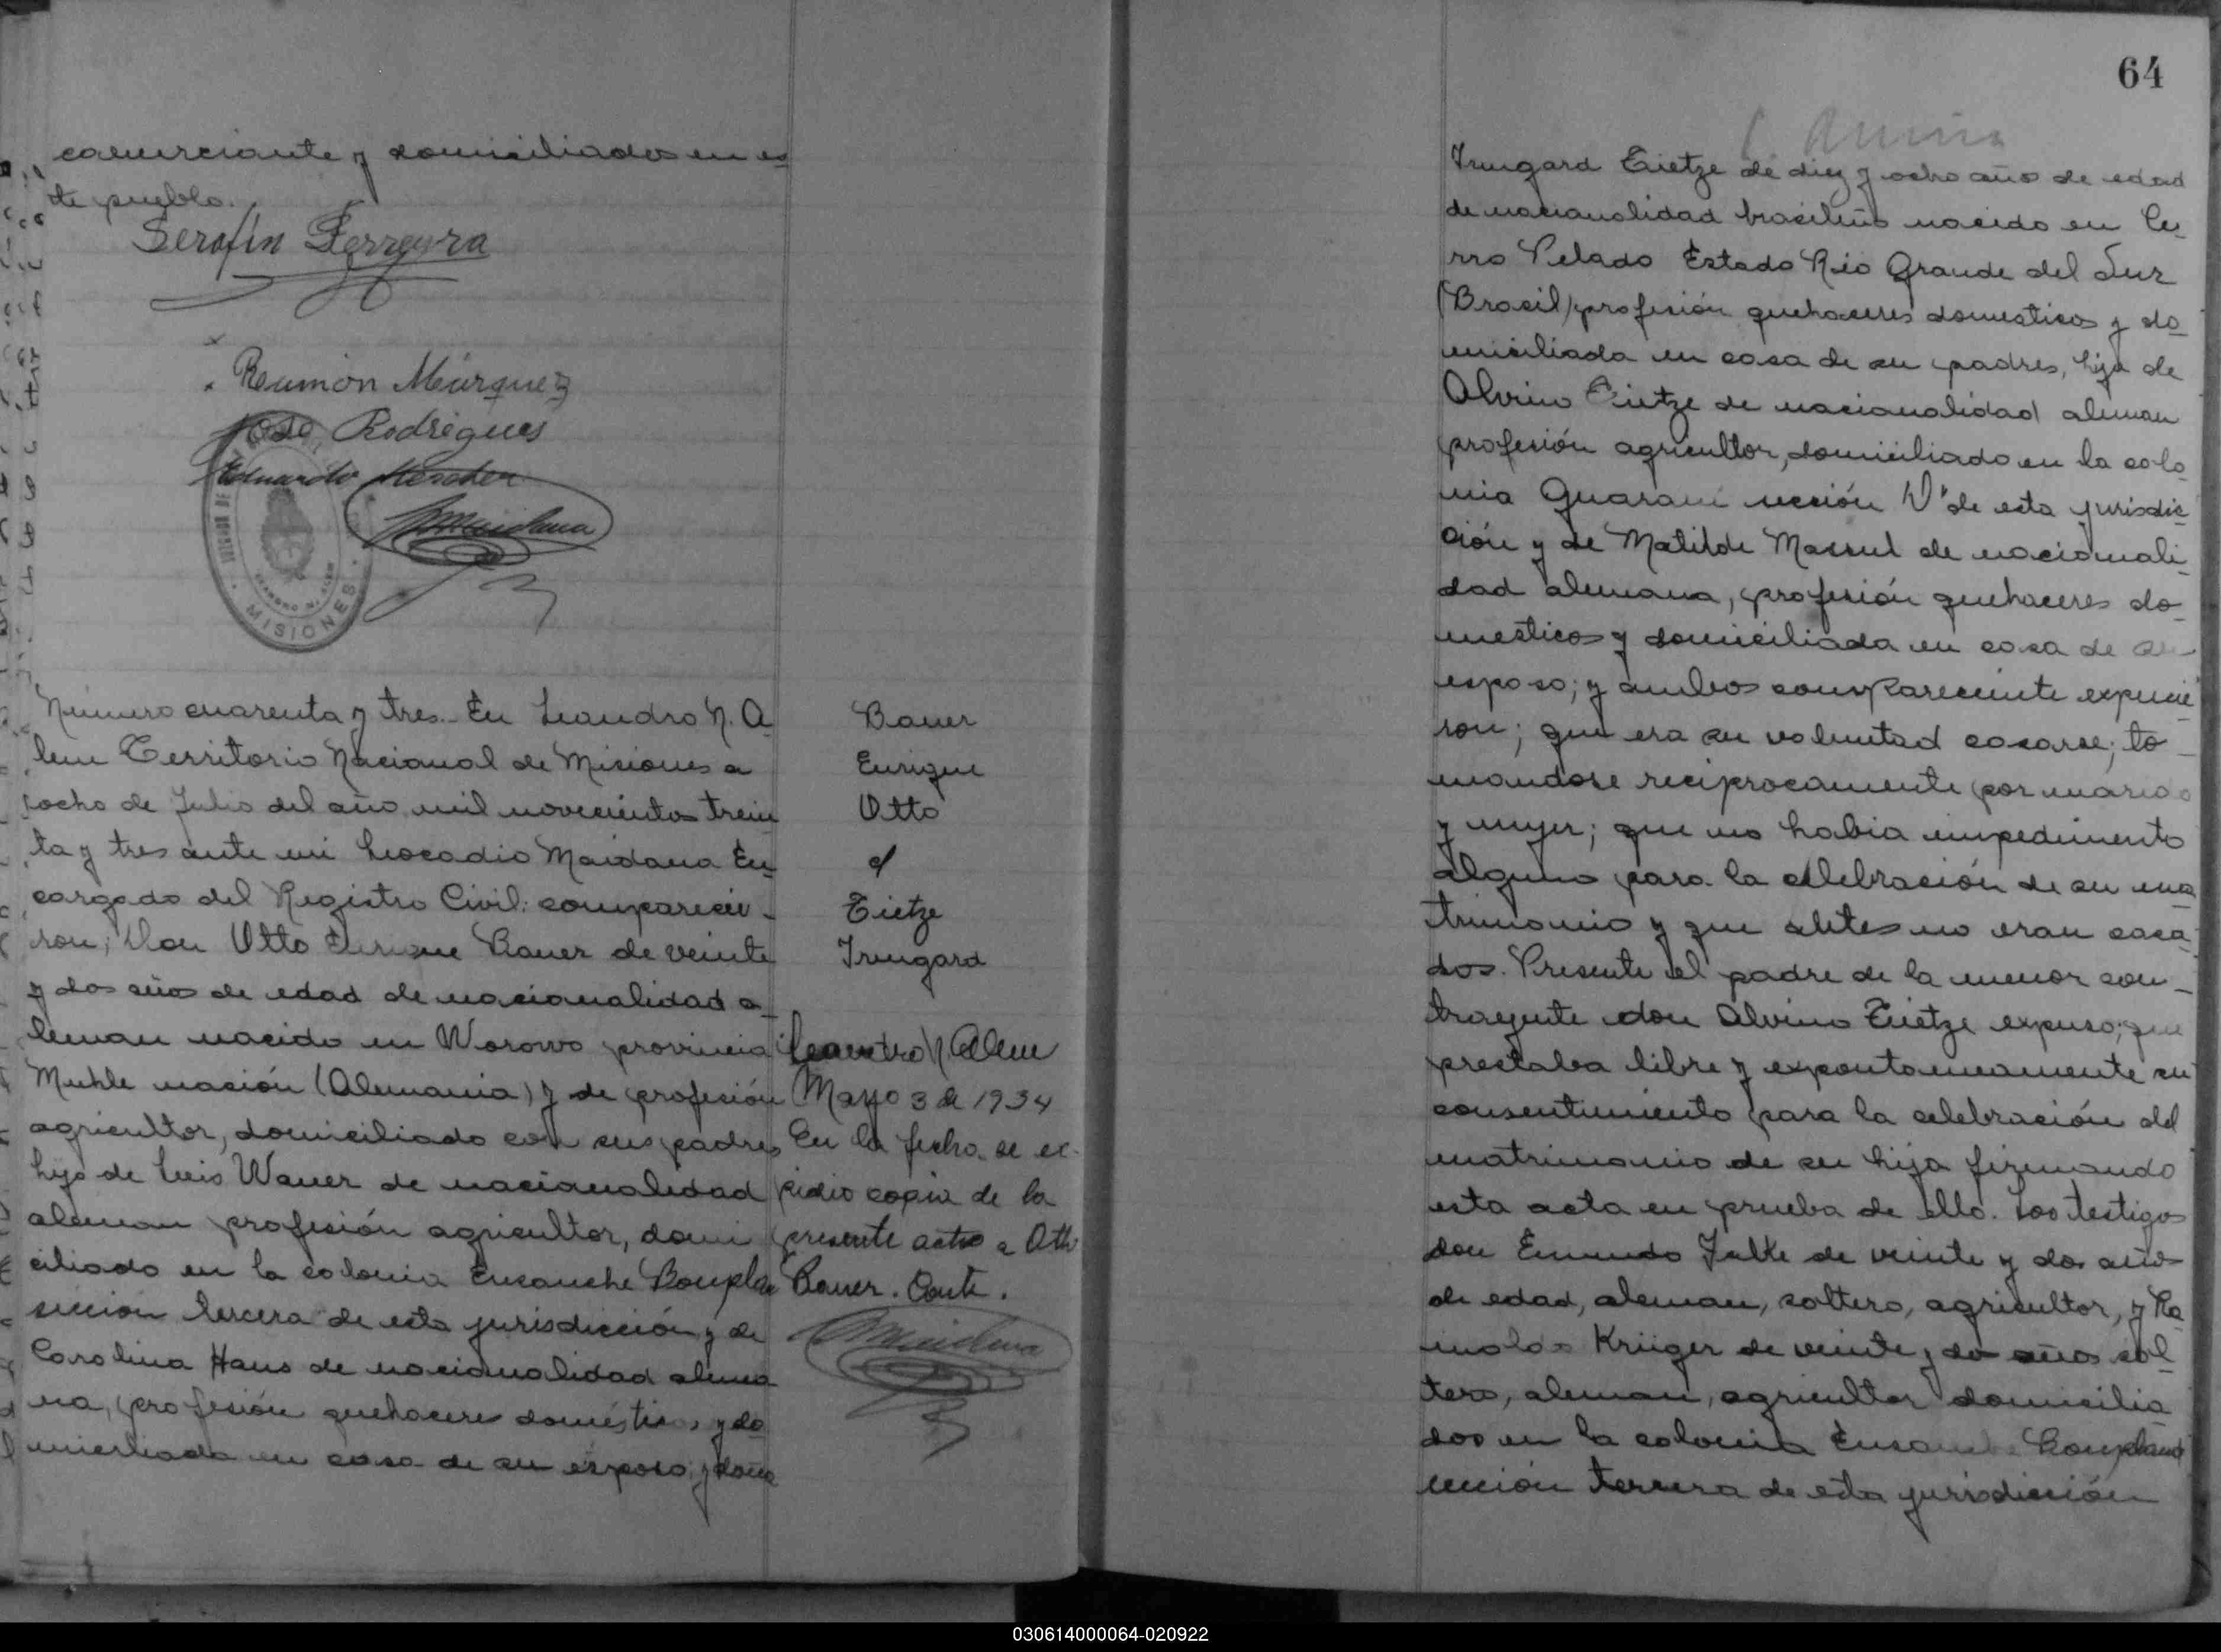 comerciante y domiciliados en es
te pueblo.
Serafín Ferreyra
Ramón Márquez
José Rodrigues
Eduardo
MISIONES
Número cuarenta y tres.- En Leandro N. A
lem Territorio Nacional de Misiones a
ocho de Julio del año mil novecientos trein
ta y tres ante mi Leocadio Maidana En
cargado del Registro Civil: comparecie-
ron; Don Otto Enrique Bauer de veinte
y dos años de edad de nacionalidad a-
leman nacido en Worowo provincia
Muhle nación (Alemania) y de profesión
agricultor, domiciliado con sus padres
hijo de Luis Waner de nacionalidad
aleman profesión agricultor, domi
ciliado en la colonia Ensanche Bonplan
sección tercera de esta jurisdicción y de
Carolina Haus de nacionalidad alema
na, profesión quehaceres domésticos y do
miciliada en casa de su esposo; y doña
Bauer
Enrique
Otto
c/
Tietze
Irmgard
Leandro N. Alem
Mayo 3 de 1934
En la fecha se ex-
pidio copia de la
presente acta a Otto
Bauer. Conste.
64
Irmgard Tietze de diez y ocho año de edad
de nacionalidad brasileño nacido en Ce-
rro Pelado Estado Rio Grande del Sur
(Brasil) profesión quehaceres domesticos y do
miciliada en casa de su padres, hija de
Alvino Tietze de nacionalidad aleman
profesión agricultor, domiciliado en la colo
nia Guaraní sección de esta jurisdic-
ción y de Matilde Massul de nacionali-
dad alemana, profesión quehaceres do-
mesticos y domiciliada en casa de su
esposo; y ambos compareciente expusie-
ron; que era su voluntad casarse; to-
mandose reciprocamente por marido
y mujer; que no habia impedimento
alguno para la celebración de su ma
trimonio y que antes no eran casa-
dos. Presente el padre de la menor con-
trayente don Alvino Tietze expuso; que
prestaba libre y expontaneamente su
consentimiento para la celebración del
matrimonio de su hija firmando
esta acta en prueba de ello. Los testigos
don Emundo Falke de veinte y dos años
de edad, aleman, soltero, agricultor, y Re-
inoldo Krüger de veinte y dos años sol-
tero, aleman, agricultor domicilia
dos en la colonia Ensanche Bonpland
sección tercera de esta jurisdicción
030614000064-020922